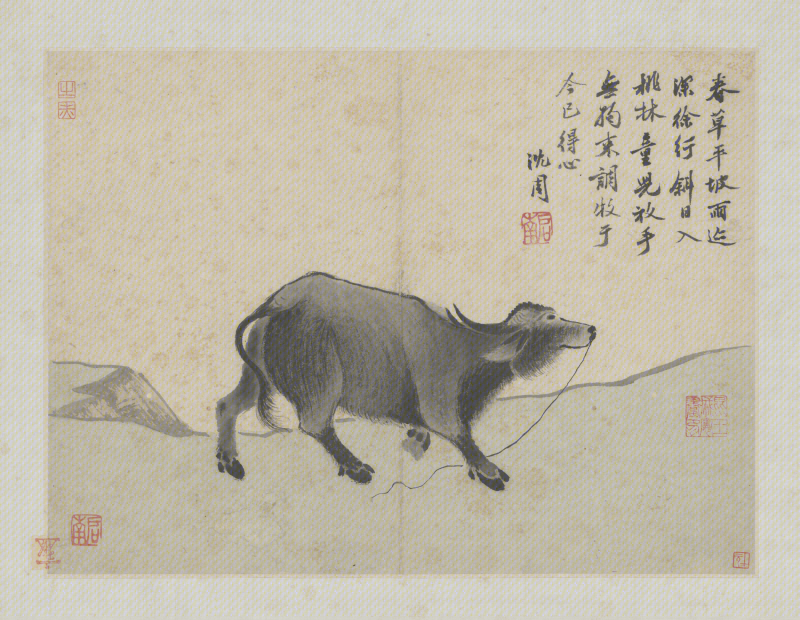 春草平坡雨迹
深徐行斜日入
桃林童兒放手
無拘束調牧于
今已得心
沈周
啟南
啟南